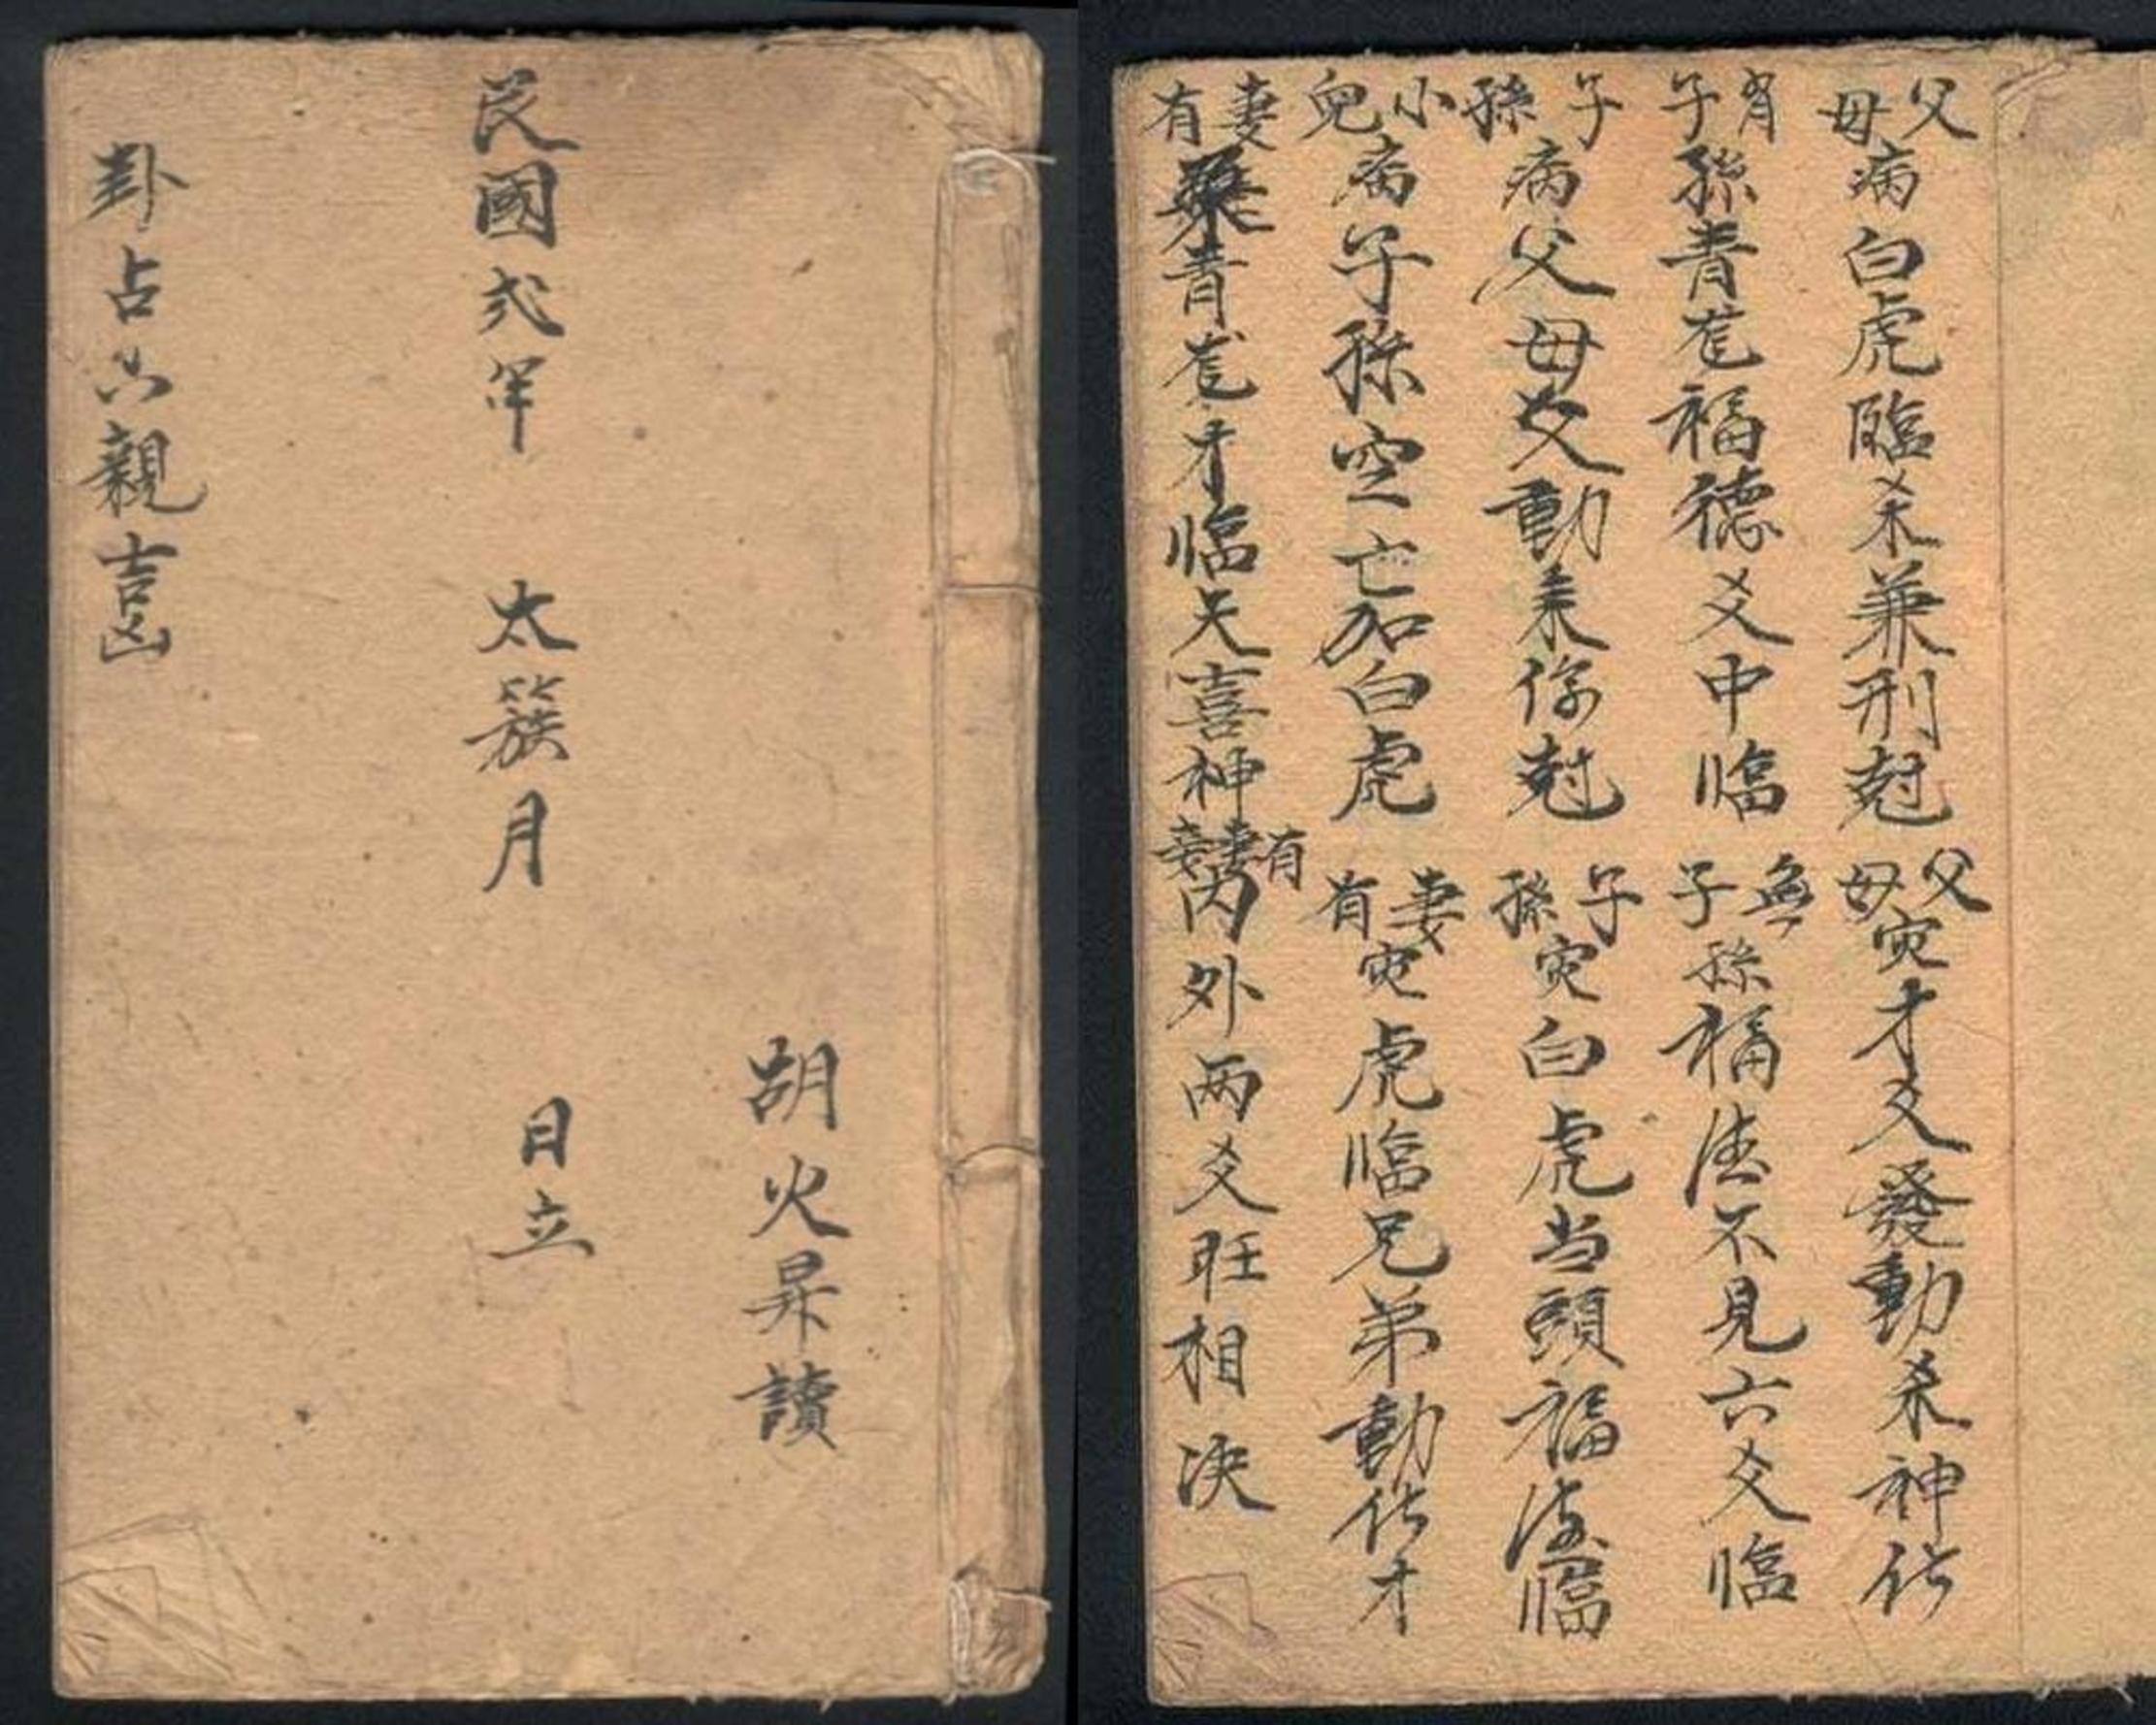 胡火昇讀
民國弍年 太簇月 日立
卦占六親吉凶
父母病白虎臨爻來兼刑尅
父母灾才爻發動杀神化
有子孫青龙福德爻中临
無子孫福德不見六爻临
子孫病父母爻動来伤尅
子孫灾白虎当頭福德临
小兒病子孫空亡加白虎
妻有灾虎临兄弟動化才
妻有青龙才临天喜神
有妻妾内外两爻旺相决